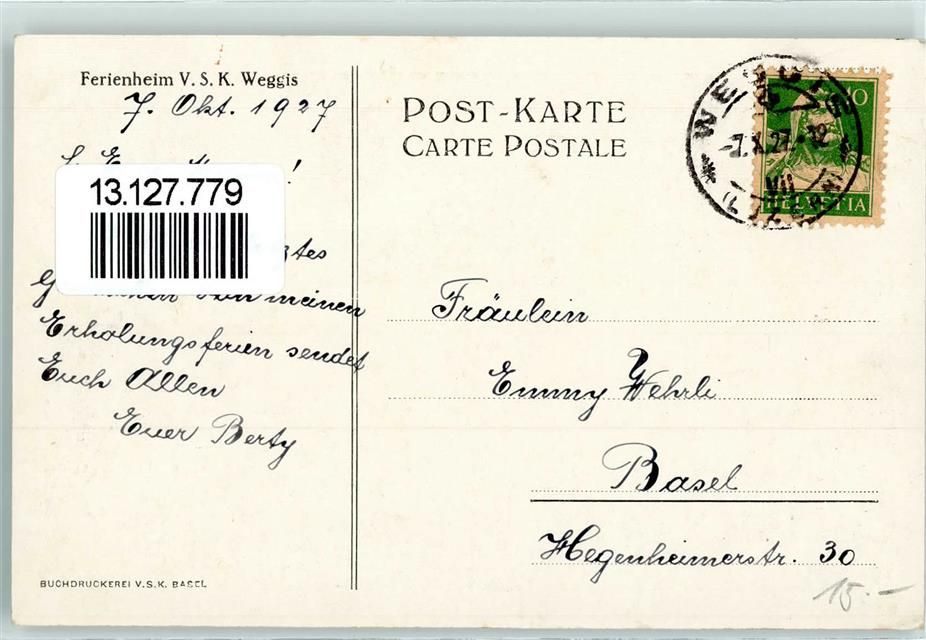 Ferienheim V. S. K. Weggis
7. Okt. 1927
POST-KARTE
CARTE POSTALE
WEGGIS
-7.X.27.-12
VII
(LUZERN)
10
HELVETIA
L. !
13.127.779
meinen
Erholungsferien sendet
Euch Allen
Euer Berty
Fräulein
Emmy Wehrli
Basel
Hegenheimerstr. 30
BUCHDRUCKEREI V.S.K. BASEL
15.-